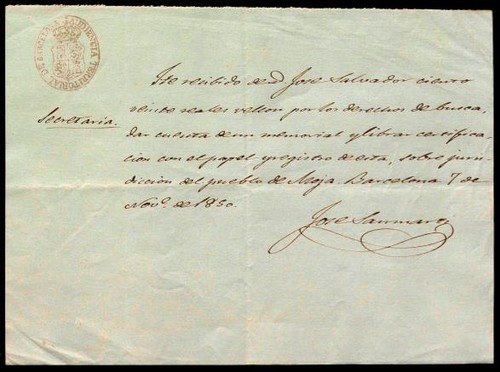 AUDIENCIA TERRITORIAL DE
He recibido de D. Jose Salvador ciento
veinte reales vellon por los derechos de busca,
Secretaria.
dar cuenta de un memorial y librar certifica
cion con el papel y registro de esta, sobre juris
diccion del pueblo de Moja. Barcelona 7 de
Novᵉ. de 1850.
Jose Sanmartí